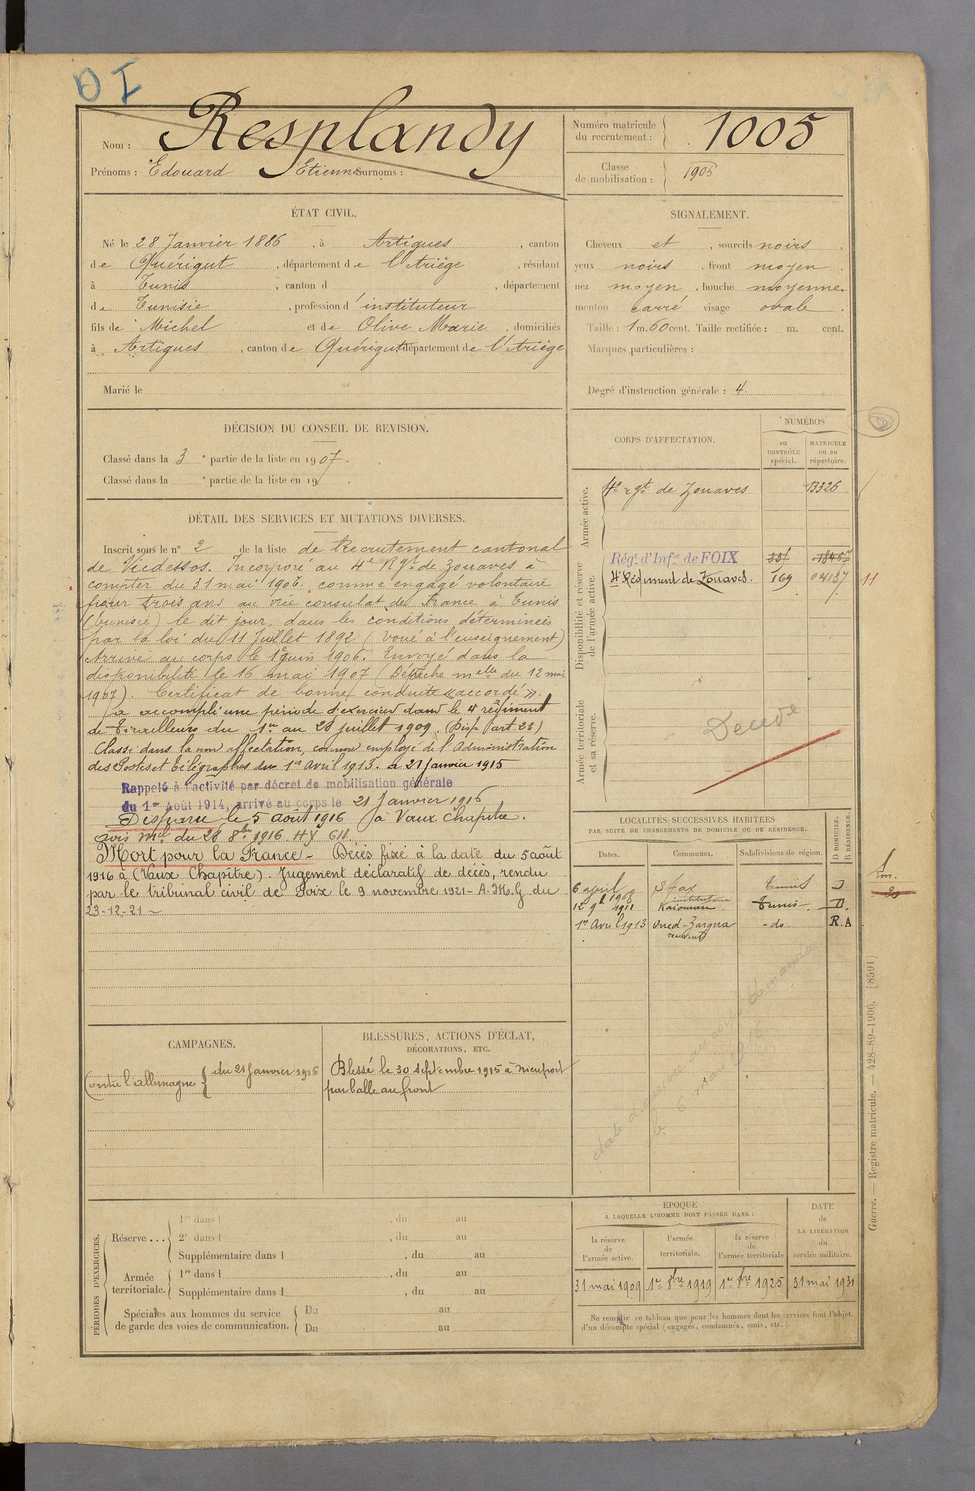 I D
Nom : Resplandy
Prénoms : Edouard Etienne Surnoms :
Numéro matricule du recrutement : 1005
Classe de mobilisation : 1905
ÉTAT CIVIL.
Né le 28 Janvier 1886, à Artigues, canton
de Quérigut, département de l'Ariège, résidant
à Tunis, canton d , département
de Tunisie, profession d'instituteur
fils de Michel et de Olive Marie, domiciliés
à Artigues, canton de Quérigut département de l'Ariège
Marié le
SIGNALEMENT.
Cheveux et , sourcils noirs
yeux noirs, front moyen,
nez moyen, bouche moyenne
menton carré visage ovale.
Taille : 1 m. 60 cent. Taille rectifiée : m. cent.
Marques particulières :
Degré d'instruction générale : 4
DÉCISION DU CONSEIL DE REVISION.
Classé dans la 3e partie de la liste en 1907.
Classé dans la e partie de la liste en 19 .
DÉTAIL DES SERVICES ET MUTATIONS DIVERSES.
Inscrit sous le n° 2 de la liste de Recrutement cantonal
de Vicdessos. Incorporé au 4e Rgt de Zouaves à
compter du 31 mai 1906. comme engagé volontaire
pour trois ans au vice consulat de France à Tunis
(Tunisie) le dit jour, dans les conditions déterminées
par la loi du 11 Juillet 1892 (voué à l'enseignement)
Arrivé au corps le 1er juin 1906. Envoyé dans la
disponibilité le 16 mai 1907 (Dépêche mlle du 12 mai
1907). Certificat de bonne conduite « accordé ».
a accompli une période d'exercices dans le 4 régiment
de Tirailleurs du 1er au 28 juillet 1909. (Disp. l'art. 23)
Classé dans la non affectation, comme employé de l'Administration
des Postes et Télégraphes du 1er Avril 1913. à 21 Janvier 1915
Rappelé à l'activité par décret de mobilisation générale
du 1er Août 1914, arrivé au corps le 21 Janvier 1916
Disparu le 5 août 1916 à Vaux Chapitre.
avis mel du 28 8bre 1916. HY 611.
Mort pour la France - Décès fixé à la date du 5 août
1916 à (Vaux Chapître). Jugement déclaratif de décès, rendu
par le tribunal civil de Foix le 9 novembre 1921 - A.M.G du
23-12-21 -
CORPS D'AFFECTATION.
NUMÉROS
au CONTRÔLE spécial.
MATRICULE ou au répertoire.
Armée active.
4e rgt de Zouaves 13326
Disponibilité et réserve de l'armée active.
Rég. d'Infie de FOIX
4e Régiment de Zouaves. 169 04137
11
Armée territoriale et sa réserve.
Décédé
LOCALITÉS SUCCESSIVES HABITÉES
PAR SUITE DE CHANGEMENTS DE DOMICILE OU DE RÉSIDENCE.
Dates. Communes. Subdivisions de région. D DOMICILE. R RÉSIDENCE.
6 april 1908 Sfax Tunis D
instituteur
12 9e 1911 Kairouan Tunis. D.
1er Avril 1913 Oued-Zargua - do - R.A
receveur
CAMPAGNES.
Contre l'allemagne { du 21 Janvier 1916
BLESSURES, ACTIONS D'ÉCLAT,
DÉCORATIONS, ETC.
Blessé le 30 septembre 1915 à Nieuport
par balle au front
PÉRIODES D'EXERCICES.
Réserve... 1re dans l , du au
2e dans l , du au
Supplémentaire dans l , du au
Armée territoriale. 1re dans l , du au
Supplémentaire dans l , du au
Spéciales aux hommes du service
de garde des voies de communication.
Du au
Du au
ÉPOQUE
À LAQUELLE L'HOMME DOIT PASSER DANS :
la réserve de l'armée active.
l'armée territoriale.
la réserve de l'armée territoriale
DATE de LA LIBÉRATION du service militaire.
31 mai 1909 1er 8bre 1919 1er 8bre 1925 31 mai 1931
Ne remplir ce tableau que pour les hommes dont les services font l'objet
d'un décompte spécial (engagés, condamnés, omis, etc.).
Guerre. — Registre matricule. — 428-89-1906. [8591]